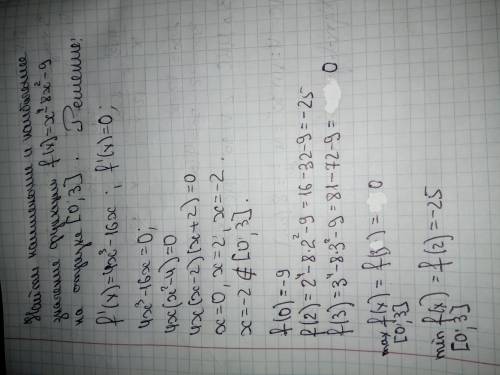 Найти наименьшее и наибольшее
значения функции f(x)=x⁴-8x²-9
на отрезке [0; 3]. Решение:
f'(x)=4x³-16x ; f'(x)=0;
4x³-16x=0;
4x(x²-4)=0
4x(x-2)(x+2)=0
x=0, x=2, x=-2.
x=-2 ∉ [0; 3].
f(0)=-9
f(2)=2⁴-8·2²-9=16-32-9=-25
f(3)=3⁴-8·3²-9=81-72-9= 0
max f(x) = f(3) = 0
[0; 3]
min f(x) = f(2) = -25
[0; 3]